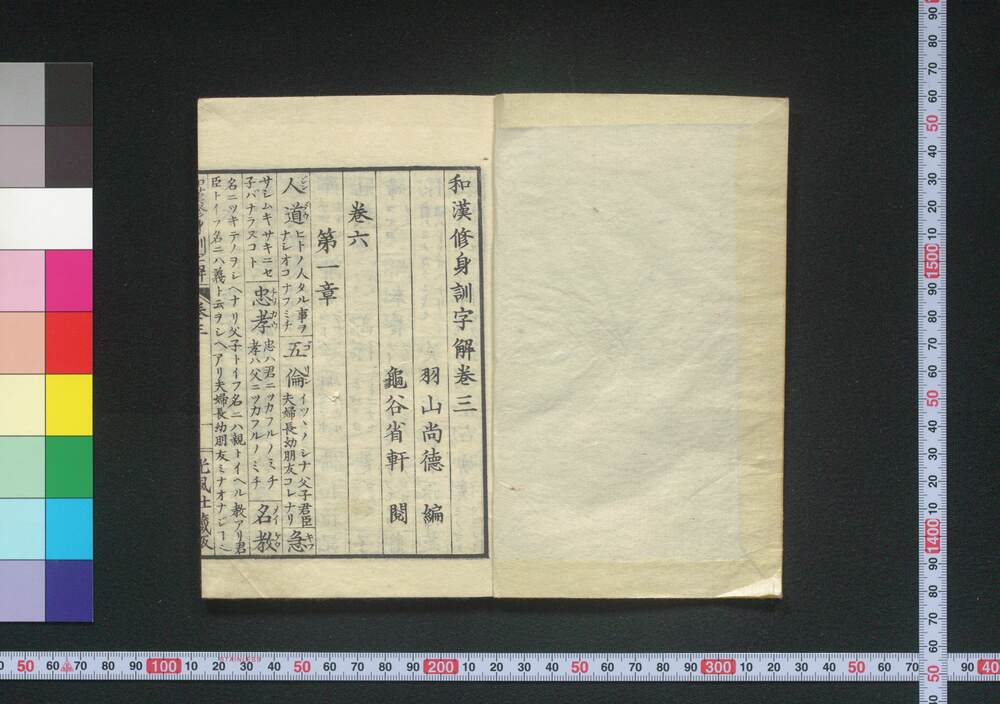 和漢修身訓字解卷三
羽山尚德 編
龜谷省軒 閲
卷六
第一章
人道 ジンダウ ヒトノ人タル事ヲナシオコナフミチ 五倫 ゴリン イツヽノシナ父子君臣夫婦長幼朋友コレナリ 急 キフ
サシムキサキニセ子バナラヌコト 忠孝 チウカウ 忠ハ君ニツカフルノミチ孝ハ父ニツカフルノミチ 名教 メイケウ
名ニツキテノヲシヘナリ父子トイフ名ニハ親トイヘル教アリ君
臣トイフ名ニハ義ト云ヲシヘアリ夫婦長幼朋友ミナオナジ
卷三
一
光風社藏版
STAINLESS
50 60 70 80 90 100 10 20 30 40 50 60 70 80 90 200 10 20 30 40 50 60 70 80 90 300 10 20 30 40 50 60 70 90
90 80 70 60 50 40 30 20 10 1500 90 80 70 60 50 40 30 20 10 1400 90 80 70 60 50